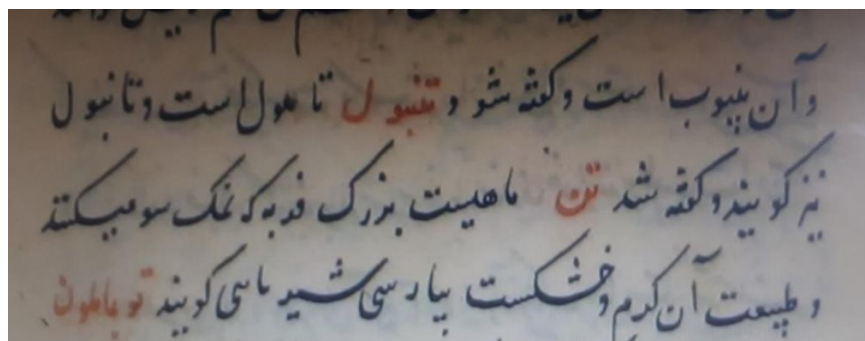 وآن ینبوب است وگفته شو و تنبول تامول است وتانبول
نیز گویند وگفته شد تن ماهیست بزرگ فربه که نمک سو میکنند
و طبیعت آن گرم وخشکست بپارسی شیر ماسی گویند توبالون